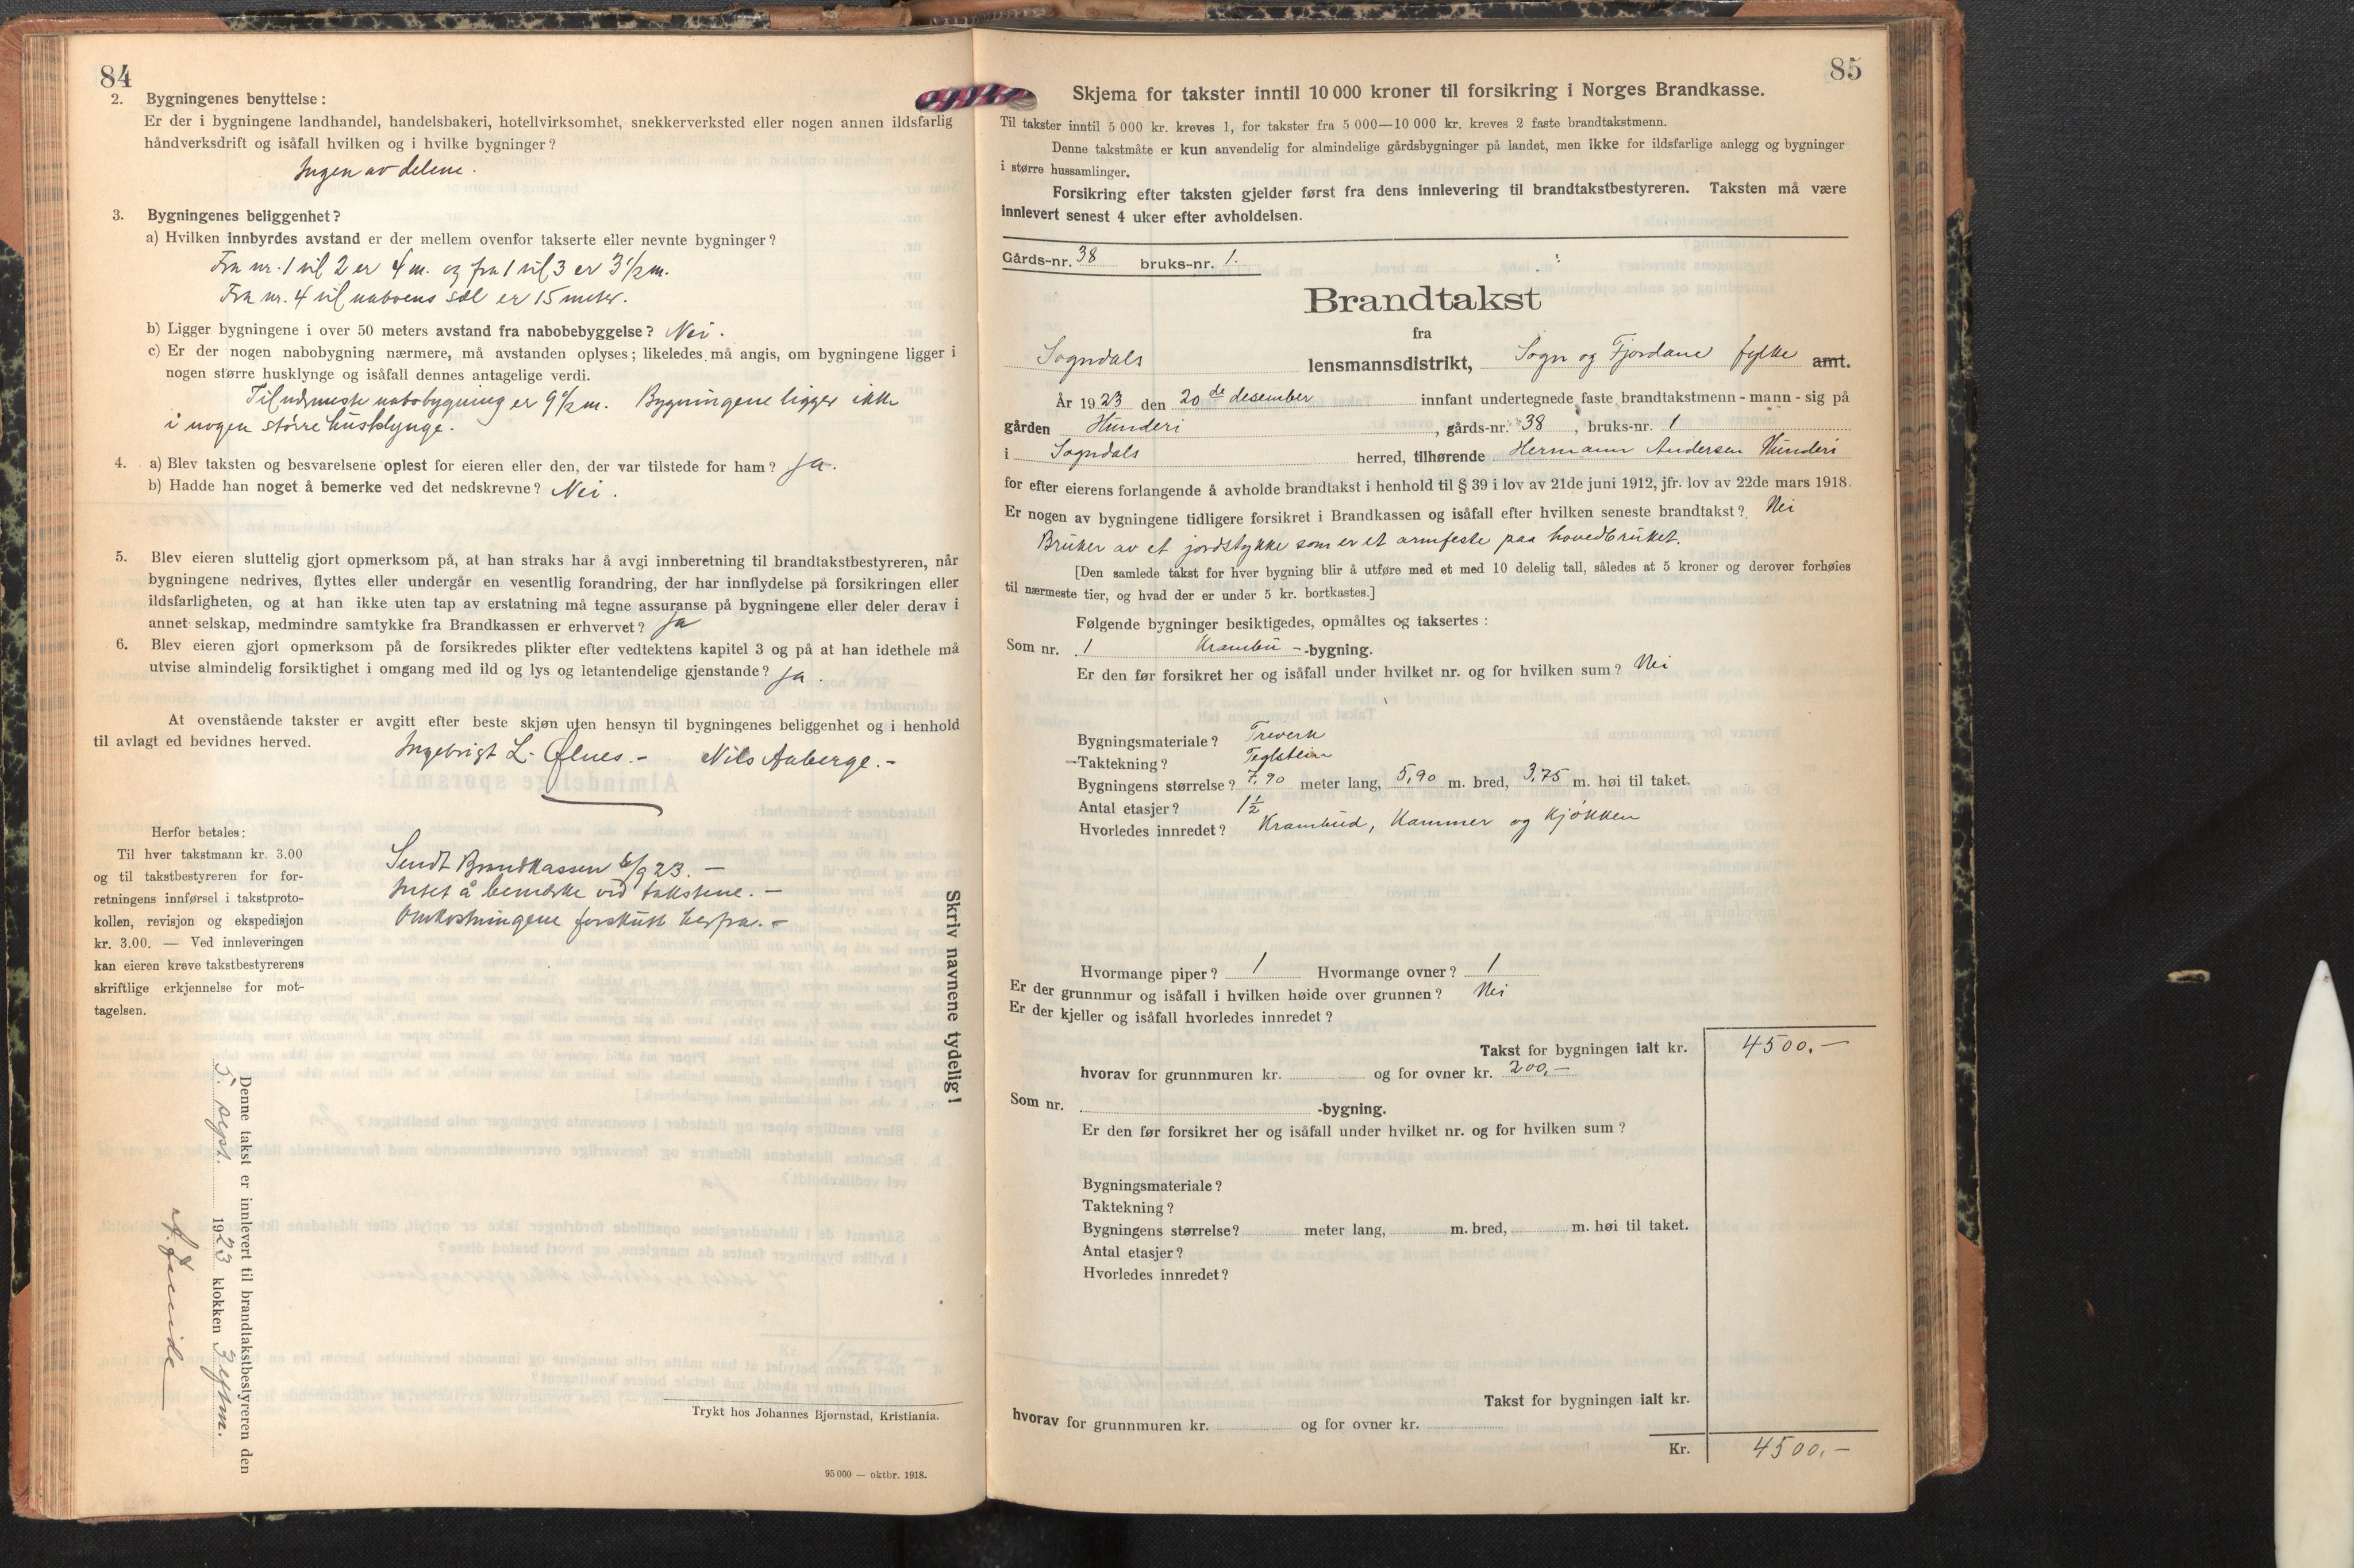 84
2. Bygningenes benyttelse:
Er der i bygningene landhandel, handelsbakeri, hotellvirksomhet, snekkerverksted eller nogen annen ildsfarlig
håndverksdrift og isåfall hvilken og i hvilke bygninger?
Ingen av delene.
3. Bygningenes beliggenhet?
a) Hvilken innbyrdes avstand er der mellem ovenfor takserte eller nevnte bygninger?
Fra nr. 1 til 2 er 4 m. og fra 1 til 3 er 3½ m.
Fra nr. 4 til naboens sæl er 15 meter.
b) Ligger bygningene i over 50 meters avstand fra nabobebyggelse? Nei.
c) Er der nogen nabobygning nærmere, må avstanden oplyses; likeledes må angis, om bygningene ligger i
nogen større husklynge og isåfall dennes antagelige verdi.
Til nærmeste nabobygning er 9½ m. Bygningene ligger ikke
i nogen større husklynge.
4. a) Blev taksten og besvarelsene oplest for eieren eller den, der var tilstede for ham? Ja.
b) Hadde han noget å bemerke ved det nedskrevne? Nei.
5. Blev eieren sluttelig gjort opmerksom på, at han straks har å avgi innberetning til brandtakstbestyreren, når
bygningene nedrives, flyttes eller undergår en vesentlig forandring, der har innflydelse på forsikringen eller
ildsfarligheten, og at han ikke uten tap av erstatning må tegne assuranse på bygningene eller deler derav i
annet selskap, medmindre samtykke fra Brandkassen er erhvervet? Ja
6. Blev eieren gjort opmerksom på de forsikredes plikter efter vedtektens kapitel 3 og på at han idethele må
utvise almindelig forsiktighet i omgang med ild og lys og letantendelige gjenstande? Ja.
At ovenstående takster er avgitt efter beste skjøn uten hensyn til bygningenes beliggenhet og i henhold
til avlagt ed bevidnes herved.
Ingebrigt L. Ølnes.- Nils Aaberge.-
Herfor betales:
Til hver takstmann kr. 3.00
og til takstbestyreren for for-
retningens innførsel i takstproto-
kollen, revisjon og ekspedisjon
kr. 3.00. — Ved innleveringen
kan eieren kreve takstbestyrerens
skriftlige erkjennelse for mot-
tagelsen.
Sendt Brandkassen 6/9 23. -
Intet å bemerke ved takstene. -
Omkostningene forskutt herfra. -
Skriv navnene tydelig!
Denne takst er innlevert til brandtakstbestyreren den
5. sept. 1923 klokken 3 eftm.
Trykt hos Johannes Bjørnstad, Kristiania.
95 000 — oktbr. 1918.
85
Skjema for takster inntil 10 000 kroner til forsikring i Norges Brandkasse.
Til takster inntil 5 000 kr. kreves 1, for takster fra 5 000—10 000 kr. kreves 2 faste brandtakstmenn.
Denne takstmåte er kun anvendelig for almindelige gårdsbygninger på landet, men ikke for ildsfarlige anlegg og bygninger
i større hussamlinger.
Forsikring efter taksten gjelder først fra dens innlevering til brandtakstbestyreren. Taksten må være
innlevert senest 4 uker efter avholdelsen.
Gårds-nr. 38 bruks-nr. 1.
Brandtakst
fra
Sogndals lensmannsdistrikt, Sogn og Fjordane fylke amt.
År 1923 den 20de desember innfant undertegnede faste brandtakstmenn - mann - sig på
gården Hunderi, gårds-nr. 38, bruks-nr. 1
i Sogndals herred, tilhørende Hermann Andersen Hunderi
for efter eierens forlangende å avholde brandtakst i henhold til § 39 i lov av 21de juni 1912, jfr. lov av 22de mars 1918.
Er nogen av bygningene tidligere forsikret i Brandkassen og isåfall efter hvilken seneste brandtakst? Nei
Bruker av et jordstykke som er et armfeste paa hovedbruket.
[Den samlede takst for hver bygning blir å utføre med et med 10 delelig tall, således at 5 kroner og derover forhøies
til nærmeste tier, og hvad der er under 5 kr. bortkastes.]
Følgende bygninger besiktigedes, opmåltes og taksertes:
Som nr. 1 Krambu - -bygning.
Er den før forsikret her og isåfall under hvilket nr. og for hvilken sum? Nei
Bygningsmateriale? Treverk
Taktekning? Teglstein
Bygningens størrelse? 7,90 meter lang, 5,90 m. bred, 3,75 m. høi til taket.
Antal etasjer? 1½
Hvorledes innredet? Krambud, Kammer og Kjøkken
Hvormange piper? 1 Hvormange ovner? 1
Er der grunnmur og isåfall i hvilken høide over grunnen? Nei
Er der kjeller og isåfall hvorledes innredet?
Takst for bygningen ialt kr. 4500.—
hvorav for grunnmuren kr. og for ovner kr. 200,—
Som nr. -bygning.
Er den før forsikret her og isåfall under hvilket nr. og for hvilken sum?
Bygningsmateriale?
Taktekning?
Bygningens størrelse? meter lang, m. bred, m. høi til taket.
Antal etasjer?
Hvorledes innredet?
Takst for bygningen ialt kr.
hvorav for grunnmuren kr. og for ovner kr.
Kr. 4500.—